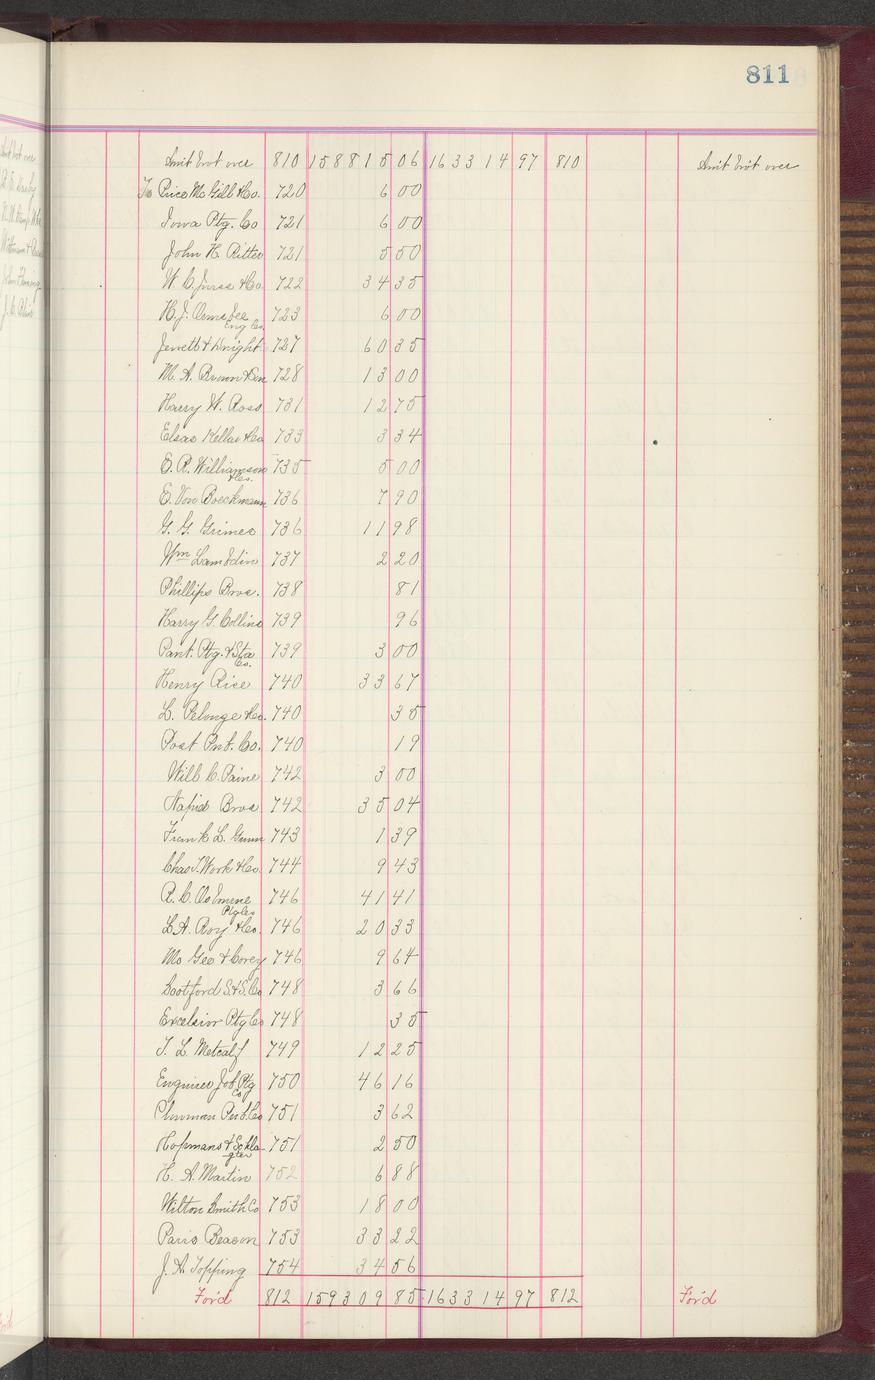 811
Amt brot over 810 158815 06 163314 97 810 Amt brot over
To Price Mc Gill & Co. 720 6 00
Iowa Ptg. Co 721 6 00
John H. Ritter 721 5 50
W. C. & Co 722 34 35
H. J. Ormsbee Eng Co. 723 6 00
Jewett & Wright 727 60 35
M. A. Brown & Son 728 13 00
Harry W. Ross 731 12 75
Elsas Keller & Co 733 3 34
E. R. Williamson & Co. 735 5 00
E. Von Boeckmann 736 7 90
G. G. Grimes 736 11 98
Wm Lambdin 737 2 20
Phillips Bros. 738 81
Harry G. Collins 739 96
Pant. Ptg. & Sta Co. 739 3 00
Henry Rice 740 33 67
L. Pelonge & Co. 740 35
Post Pub. Co. 740 19
Will C. Paine 742 3 00
Napier Bros 742 35 04
Frank L. Gunn 743 1 39
Chas T. Work & Co. 744 9 43
R. C. Osborne Ptg Co 746 41 41
L. A. Roy & Co. 746 20 33
Mc Gee & Corey 746 9 64
Bootford S. & S. Co 748 3 66
Excelsior Ptg Co 748 35
T. L. Metcalf 749 12 25
Enquirer Job Ptg Co 750 46 16
Plowman Pub. Co 751 3 62
Hofmans & Schlagter 751 2 50
H. A. Martin 752 6 88
Wilton Smith Co 753 18 00
Paris Beacon 753 33 22
J. A. Topping 754 34 56
For'd 812 159309 85 163314 97 812 For'd